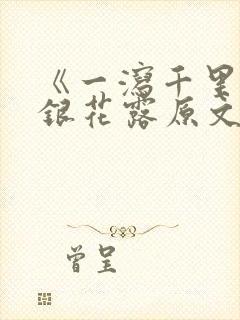 《一泻千里
银花露原文
曾呈